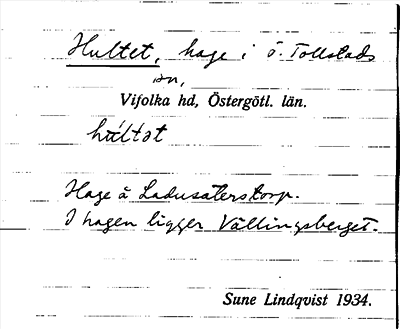 Hultet, hage i Ö. Tollstads
sn,
Vifolka hd, Östergötl. län.
húltət
Hage å Ladusäterstorp.
I hagen ligger Vällingsberget.
Sune Lindqvist 1934.